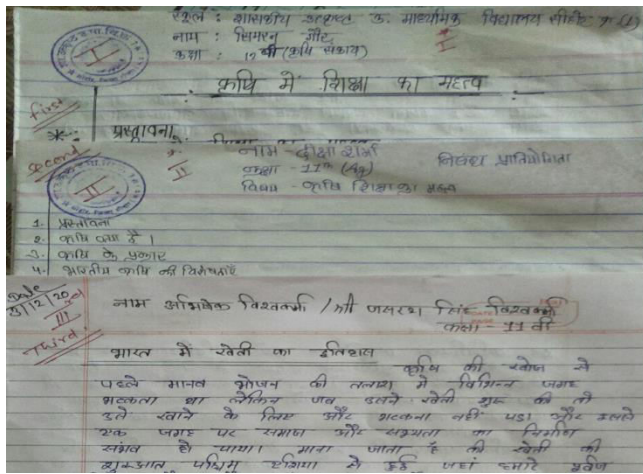 स्कूल : शासकीय उत्कृष्ट उ. माध्यमिक विद्यालय सीहोर क्र (1)
नाम : सिमरन गौर
कक्षा : 12 वीं (कृषि संकाय)
I
कृषि में शिक्षा का महत्व
First
प्रस्तावना
Second
II
नाम - दीक्षा शर्मा
निबंध प्रतियोगिता
कक्षा - 11th (Ag)
विषय - कृषि शिक्षा का महत्व
1. प्रस्तावना
2. कृषि क्या है ।
3. कृषि के प्रकार
4. भारतीय कृषि की विशेषताएं
Date
III
Third
नाम अभिषेक विश्वकर्मा / श्री जसरथ सिंह विश्वकर्मा
कक्षा - 11 वी
भारत में खेती का इतिहास
कृषि की खोज से
पहले मानव भोजन की तलाश में विभिन्न जगह
भटकता था लेकिन जब उसने खेती शुरू की तो
उसे खाने के लिए और भटकना नहीं पड़ा और इससे
एक जगह पर समाज और सभ्यता का निर्माण
संभव हो पाया। माना जाता है की खेती की
शुरुआत पश्चिम एशिया से हुई जहां हमारे पूर्वज